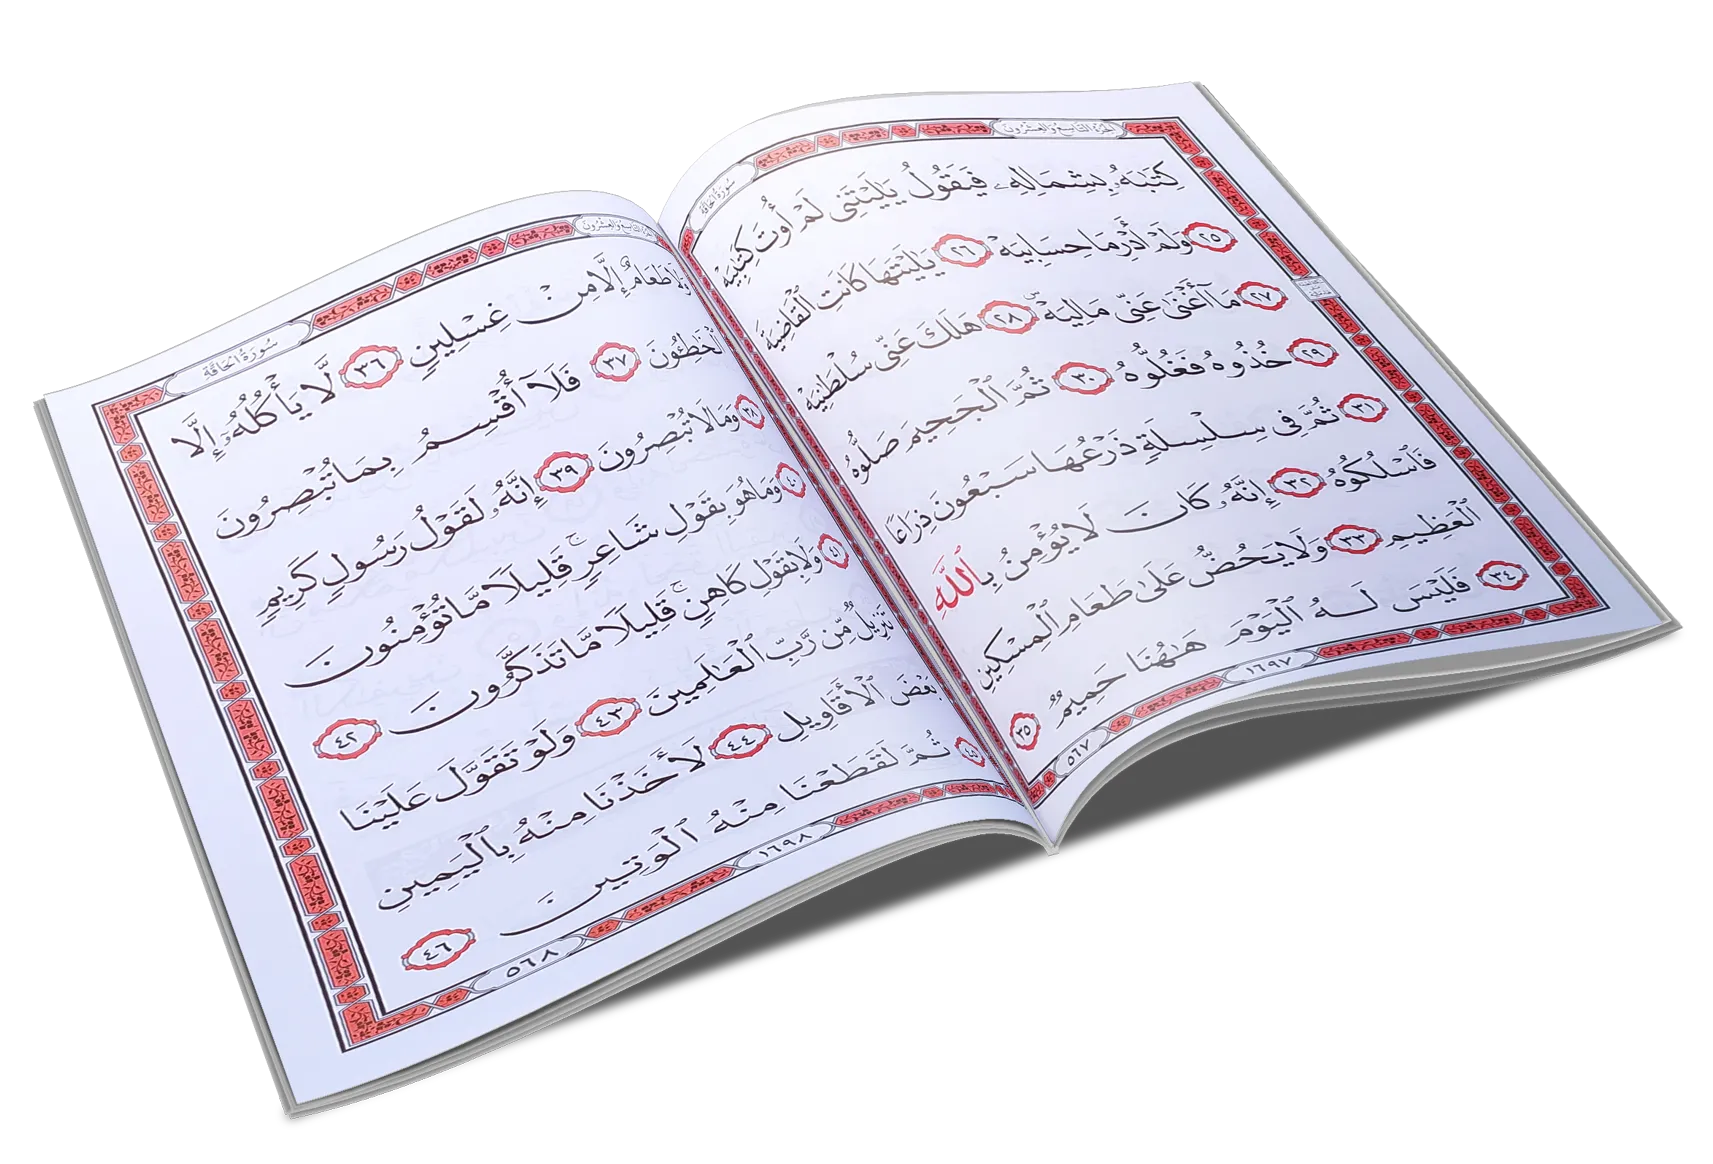 الجزء التاسع والعشرون
سورة الحاقة
كِتَٰبَهُۥ بِشِمَالِهِۦ فَيَقُولُ يَٰلَيْتَنِى لَمْ أُوتَ كِتَٰبِيَهْ
٢٥ وَلَمْ أَدْرِ مَا حِسَابِيَهْ ٢٦ يَٰلَيْتَهَا كَانَتِ ٱلْقَاضِيَةَ
٢٧ مَآ أَغْنَىٰ عَنِّى مَالِيَهْ ۜ ٢٨ هَلَكَ عَنِّى سُلْطَٰنِيَهْ
٢٩ خُذُوهُ فَغُلُّوهُ ٣٠ ثُمَّ ٱلْجَحِيمَ صَلُّوهُ
٣١ ثُمَّ فِى سِلْسِلَةٍ ذَرْعُهَا سَبْعُونَ ذِرَاعًا
فَٱسْلُكُوهُ ٣٢ إِنَّهُۥ كَانَ لَا يُؤْمِنُ بِٱللَّهِ
ٱلْعَظِيمِ ٣٣ وَلَا يَحُضُّ عَلَىٰ طَعَامِ ٱلْمِسْكِينِ
٣٤ فَلَيْسَ لَهُ ٱلْيَوْمَ هَٰهُنَا حَمِيمٌ
٣٥
١٦٩٧
٥٦٧
الجزء التاسع والعشرون
سورة الحاقة
وَلَا طَعَامٌ إِلَّا مِنْ غِسْلِينٍ ٣٦ لَّا يَأْكُلُهُۥٓ إِلَّا
ٱلْخَٰطِـُٔونَ ٣٧ فَلَآ أُقْسِمُ بِمَا تُبْصِرُونَ
٣٨ وَمَا لَا تُبْصِرُونَ ٣٩ إِنَّهُۥ لَقَوْلُ رَسُولٍ كَرِيمٍ
٤٠ وَمَا هُوَ بِقَوْلِ شَاعِرٍ ۚ قَلِيلًا مَّا تُؤْمِنُونَ
٤١ وَلَا بِقَوْلِ كَاهِنٍ ۚ قَلِيلًا مَّا تَذَكَّرُونَ ٤٢
تَنزِيلٌ مِّن رَّبِّ ٱلْعَٰلَمِينَ ٤٣ وَلَوْ تَقَوَّلَ عَلَيْنَا
بَعْضَ ٱلْأَقَاوِيلِ ٤٤ لَأَخَذْنَا مِنْهُ بِٱلْيَمِينِ
٤٥ ثُمَّ لَقَطَعْنَا مِنْهُ ٱلْوَتِينَ ٤٦
١٦٩٨
٥٦٨